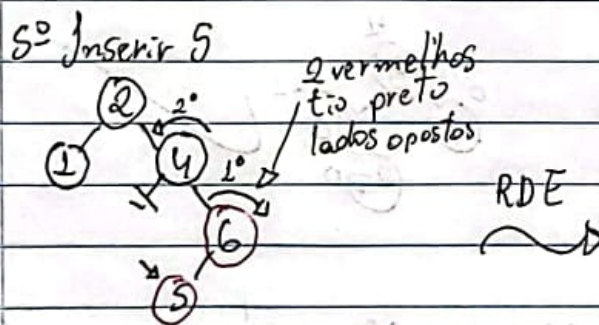 5º Inserir 5
2 vermelhos
tio preto
lados opostos
2
2º
1
4
1º
6
5
RDE